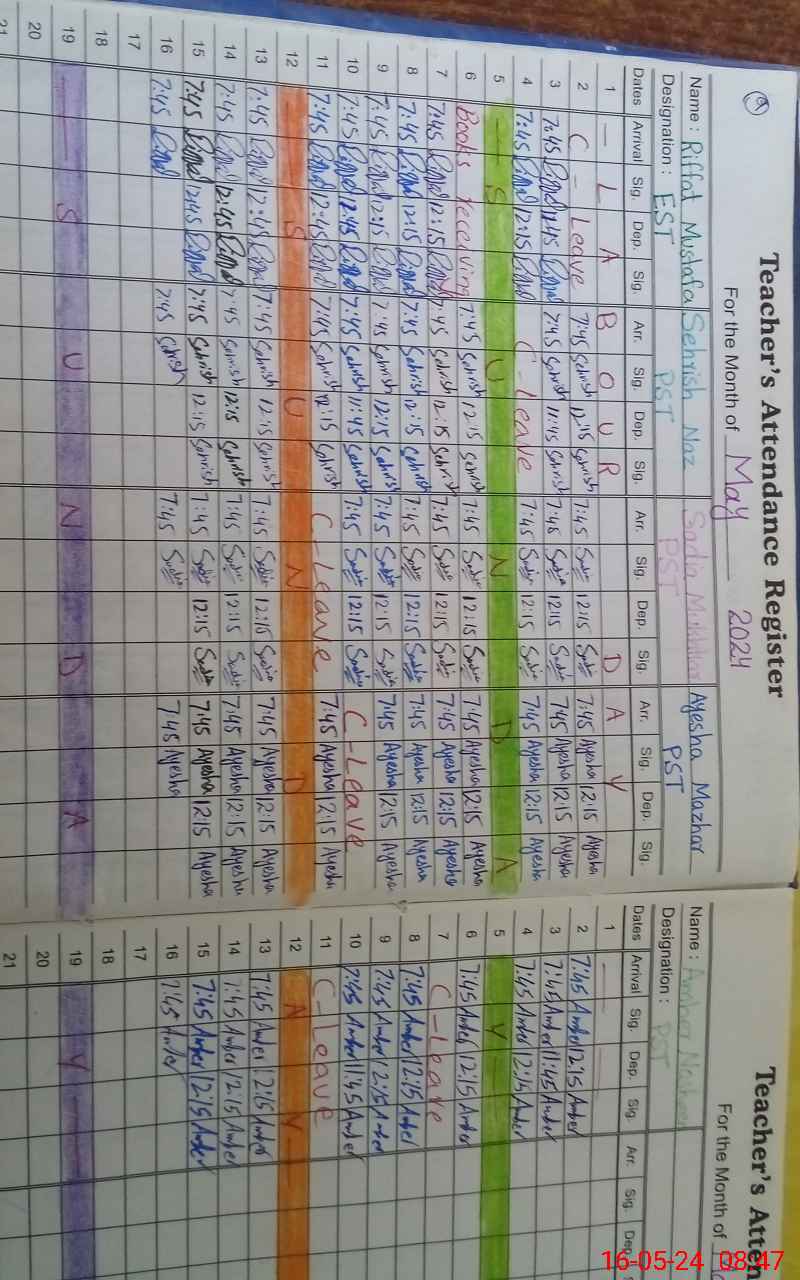 Teacher's Attendance Register
For the Month of May 2024
Name : Riffat Mustafa Sehrish Naz Sadia Mukhtar Ayesha Mazhar
Designation : EST PST PST PST
Dates Arrival Sig. Dep. Sig. Arr. Sig. Dep. Sig. Arr. Sig. Dep. Sig. Arr. Sig. Dep. Sig.
1 — L A B O U R D A Y
2 C - Leave 7:45 Sehrish 12:15 Sehrish 7:45 Sadia 12:15 Sadia 7:45 Ayesha 12:15 Ayesha
3 7:45 12:45 7:45 Sehrish 11:45 Sehrish 7:45 Sadia 12:15 Sadia 7:45 Ayesha 12:15 Ayesha
4 7:45 12:15 C - Leave 7:45 Sadia 12:15 Sadia 7:45 Ayesha 12:15 Ayesha
5 — S U N D A
6 Books receiving 7:45 Sehrish 12:15 Sehrish 7:45 Sadia 12:15 Sadia 7:45 Ayesha 12:15 Ayesha
7 7:45 12:15 7:45 Sehrish 12:15 Sehrish 7:45 Sadia 12:15 Sadia 7:45 Ayesha 12:15 Ayesha
8 7:45 12:15 7:45 Sehrish 12:15 Sehrish 7:45 Sadia 12:15 Sadia 7:45 Ayesha 12:15 Ayesha
9 7:45 12:15 7:45 Sehrish 12:15 Sehrish 7:45 Sadia 12:15 Sadia 7:45 Ayesha 12:15 Ayesha
10 7:45 12:45 7:45 Sehrish 11:45 Sehrish 7:45 Sadia 12:15 Sadia C - Leave
11 7:45 12:45 7:45 Sehrish 12:15 Sehrish C - Leave 7:45 Ayesha 12:15 Ayesha
12 — S U N D
13 7:45 12:45 7:45 Sehrish 12:15 Sehrish 7:45 Sadia 12:15 Sadia 7:45 Ayesha 12:15 Ayesha
14 7:45 12:45 7:45 Sehrish 12:15 Sehrish 7:45 Sadia 12:15 Sadia 7:45 Ayesha 12:15 Ayesha
15 7:45 12:45 7:45 Sehrish 12:15 Sehrish 7:45 Sadia 12:15 Sadia 7:45 Ayesha 12:15 Ayesha
16 7:45 7:45 Sehrish 7:45 Sadia 7:45 Ayesha
17
18
19 — S U N D A
20
21
Teacher's Atten
For the Month of
Name : Amber
Designation : PST
Dates Arrival Sig. Dep. Sig. Arr. Sig. Dep.
1
2 7:45 Amber 12:15 Amber
3 7:45 Amber 11:45 Amber
4 7:45 Amber 12:15 Amber
5 Y
6 7:45 Amber 12:15 Amber
7 C - Leave
8 7:45 Amber 12:15 Amber
9 7:45 Amber 12:15 Amber
10 7:45 Amber 11:45 Amber
11 C - Leave
12 A Y
13 7:45 Amber 12:15 Amber
14 7:45 Amber 12:15 Amber
15 7:45 Amber 12:15 Amber
16 7:45 Amber
17
18
19 Y
20
21
16-05-24 08:47